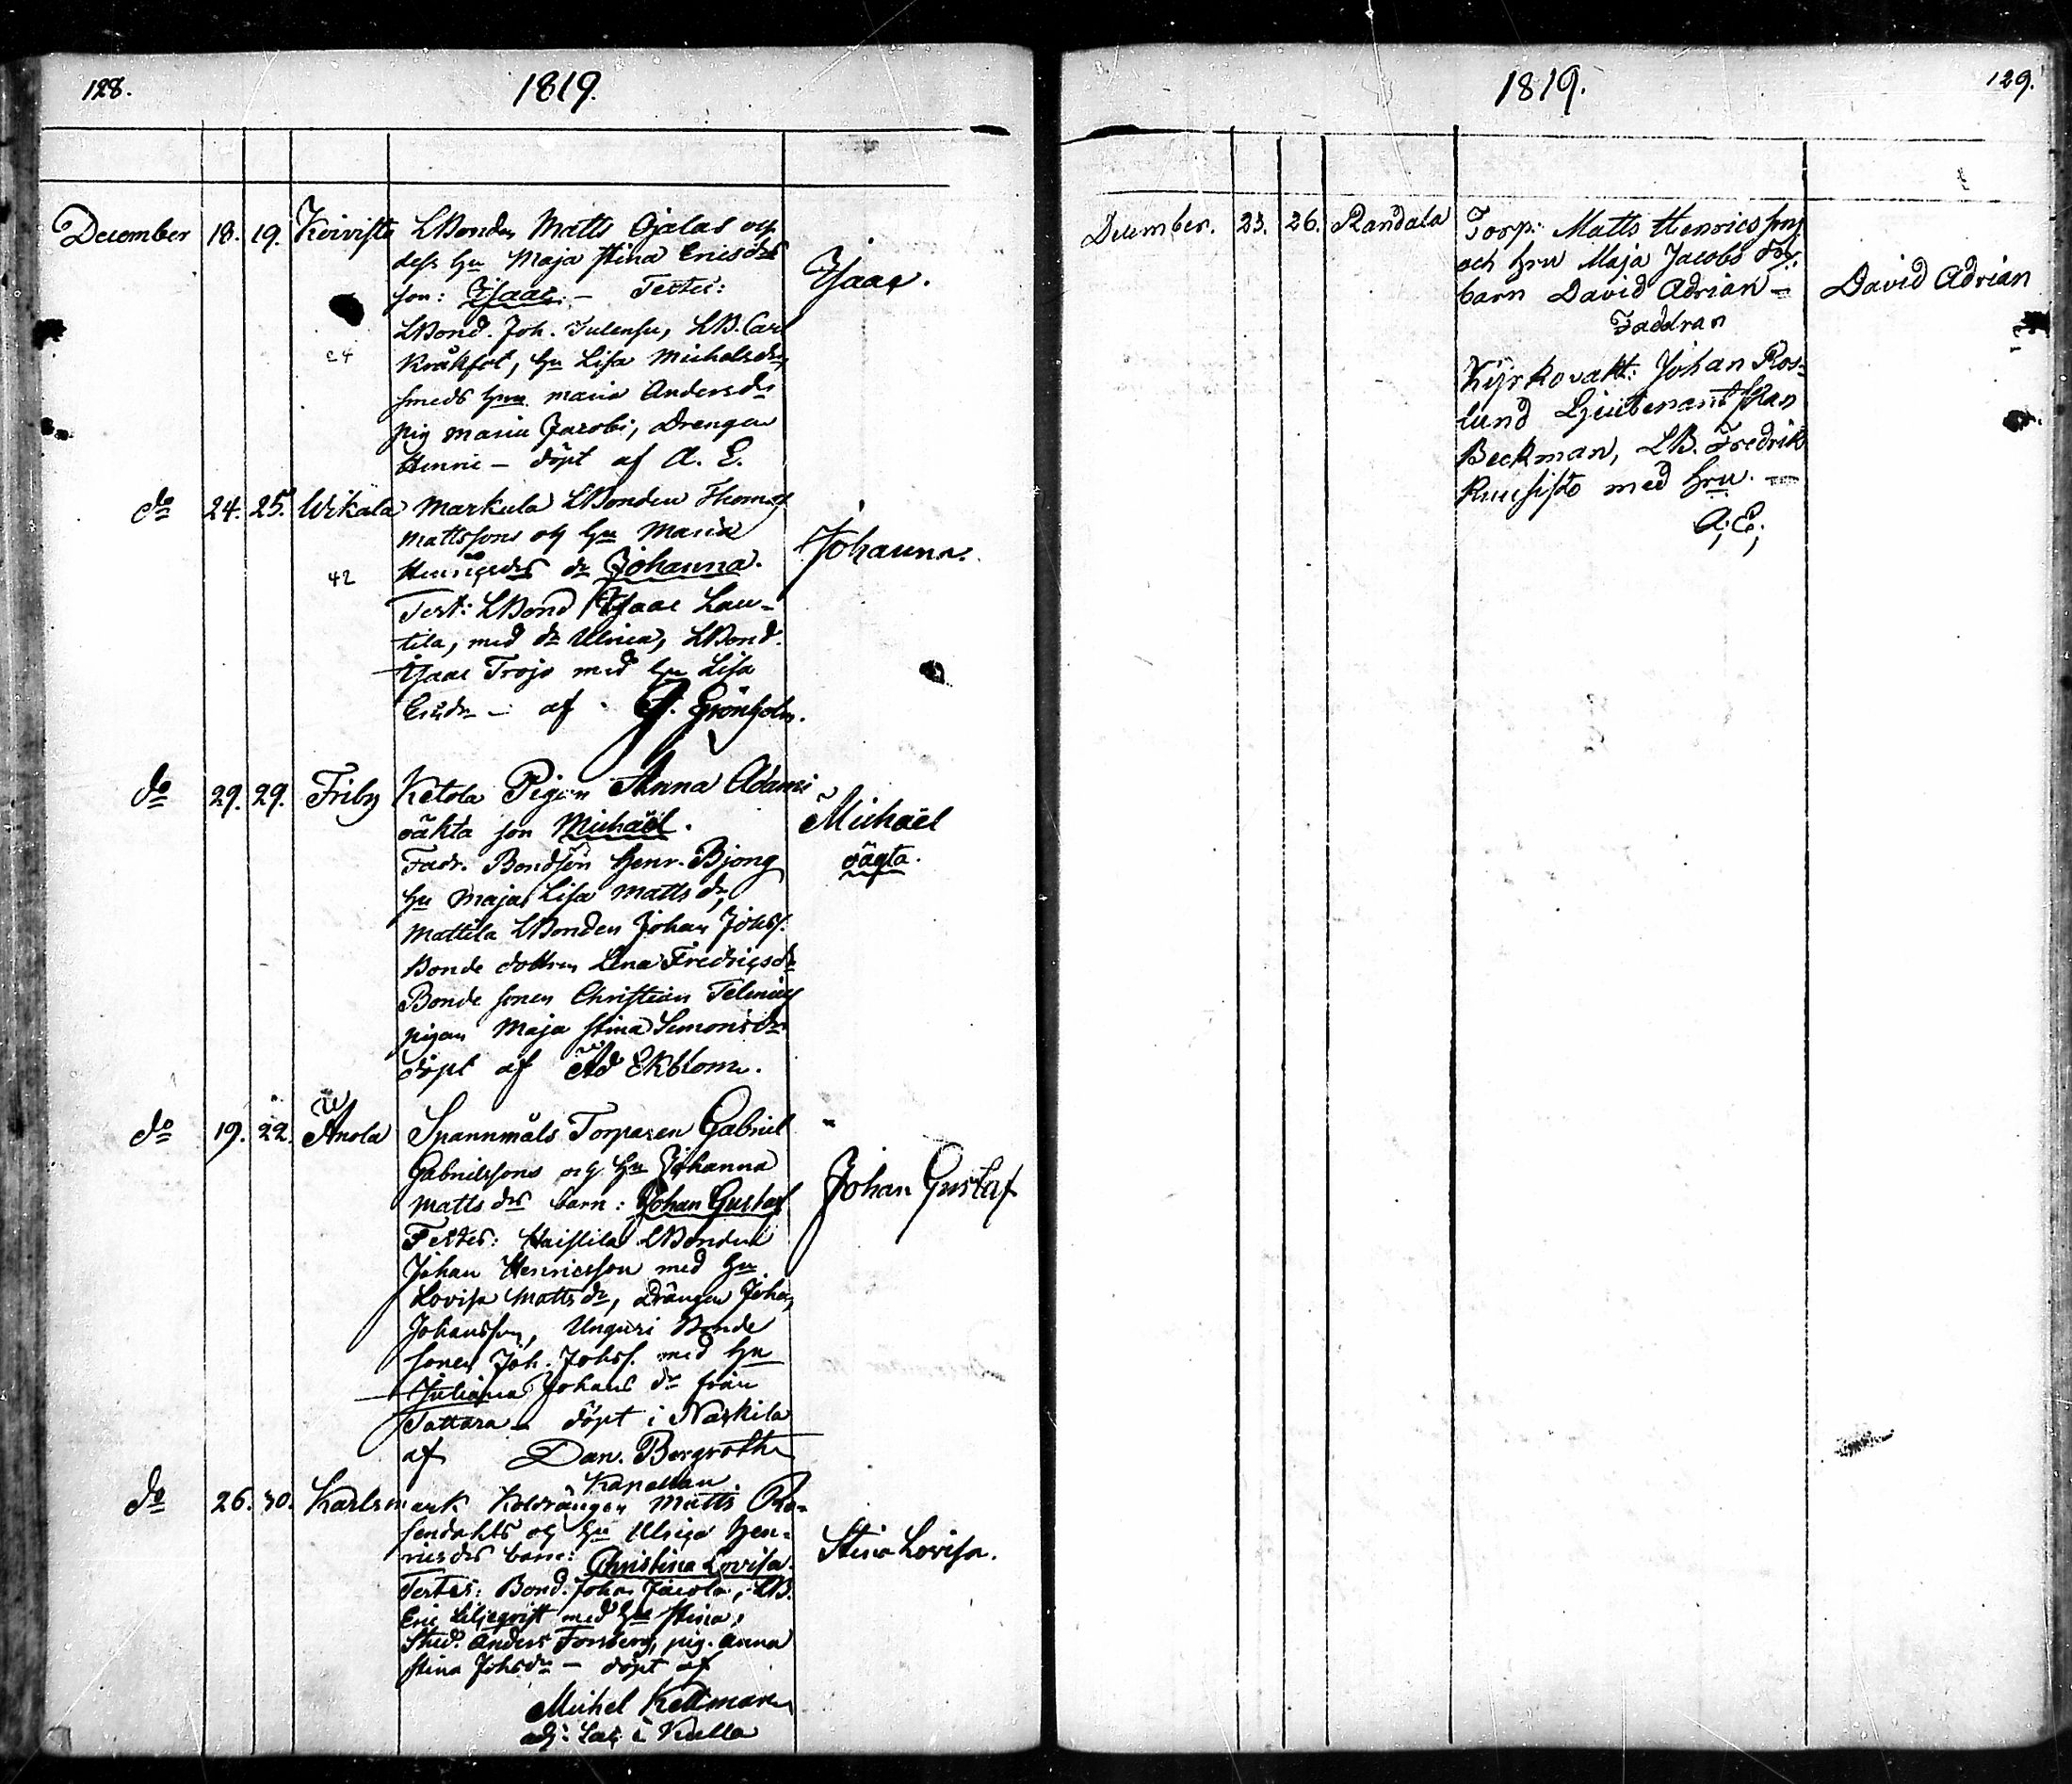 128.
1819.
December 18. 19. Koivisto LBonden Matts Ojalas och
dess hu Maja Stina Ericsdrs
son: Isaac. – Testes:
LBond. Joh. Tulensu, LB. Carl
Kråkfot, hu Lisa Michelsdr,
24
smeds hru maria Andersdr
pig maria Jacobi, Drengen
Henric – döpt af A. E.
Isaac.
do 24. 25. Wikala Markula LBonden Thomas
Mattssons och hu Maria
Henricsdrs dr Johanna.
42
Test: LBond Isaac Lau-
tila, med dr Ulrica, LBond.
Isaac Trojo med hu Lisa
Ericsdr – af G. Grönholm.
Johanna.
do 29. 29. Friby Ketola Pigan Anna Adami
oäkta son Michaël.
Fadr. Bondson Henr. Bjong
hu Maja Lisa Matts dr,
Mattila LBonden Johan Johss.
Bonde dottren Lena Fredricsdr
Bonde sonen Christian
pigan Maja Stina Simonsdr
döpt af Ad Ekblom.
Michaël
oägta.
do 19. 22. Anola Spannmåls Torparen Gabriel
Gabrielssons och hu Johanna
Matts drs barn: Johan Gustaf
Testes: Haistila LBonden
Johan Henricsson med hu
Lovisa Matts dr, drängen Johan
Johansson, Unguri Bonde
sonen Joh. Johss. med hu
Juliana Johans dr från
Tattara – döpt i Naskila
af Dan. Bergroth
Kapellan
Johan Gustaf
do 26. 30. Karlsmark Koldrängen Matts Ro-
sendahls och hu Ulrica Hen-
ricsdrs barn: Christina Lovisa.
Testes: Bond. Johan Jacola, LB.
Eric Liljeqvist med hu Stina,
Stud. Anders Forsberg, pig. Anna
Stina Johsdr – döpt af
Michel Kellman
adj: Sac: i Kulla
Stina Lovisa.
1819.
129.
December. 23. 26. Randala Torp: Matts Henricsson
och hru Maja Jacobs dr,
barn David Adrian –
Faddran
Kyrkovakt: Johan Ros-
lund Ljeutenantskan
Beckman, LB. Fredrik
Ruusisto med hru. –
A; E;
David Adrian